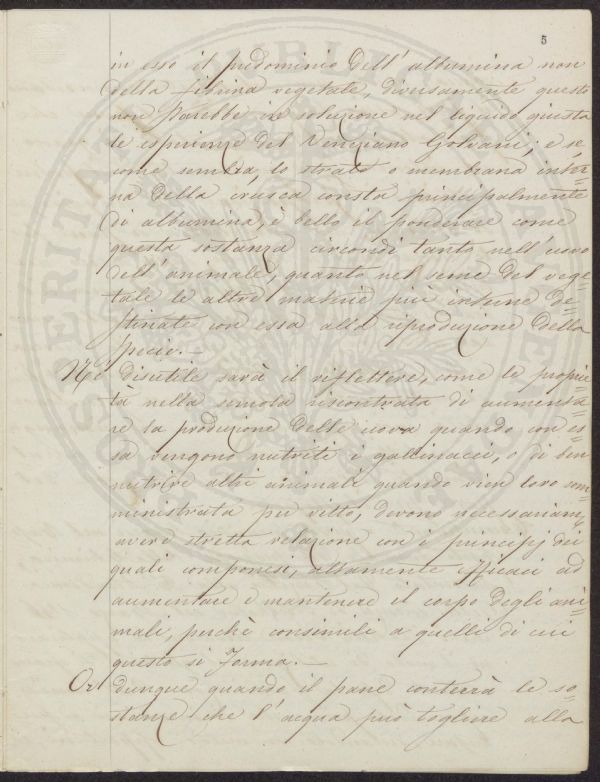 5
in esso il predominio dell'albumina non
della fibrina vegetale, diversamente questo
non sarebbe in soluzione nel liquido giusta
le esperienze del Veneziano Galvani; e se
come sembra, lo strato o membrana inter=
na della crusca consta principalmente
di albumina, è bello il ponderare come
questa sostanza circondi tanto nell'uovo
dell'animale, quanto nel seme del vege=
tale le altre materie più interne de=
stinate con essa alla riproduzione della
specie. —
Nè disutile sarà il riflettere, come le proprie=
tà nella semola riscontrate di aumenta=
re la produzione delle uova quando con es=
sa vengono nutriti i gallinacci, o di ben
nutrire altri animali quando vien loro som=
ministrata per vitto, devono necessariam.
avere stretta relazione con i principj dei
quali componesi, altamente efficaci ad
aumentare e mantenere il corpo degli ani=
mali, perchè consimili a quelli di cui
questo si forma. —
Or dunque quando il pane conterrà le so=
stanze che l'acqua può togliere alla